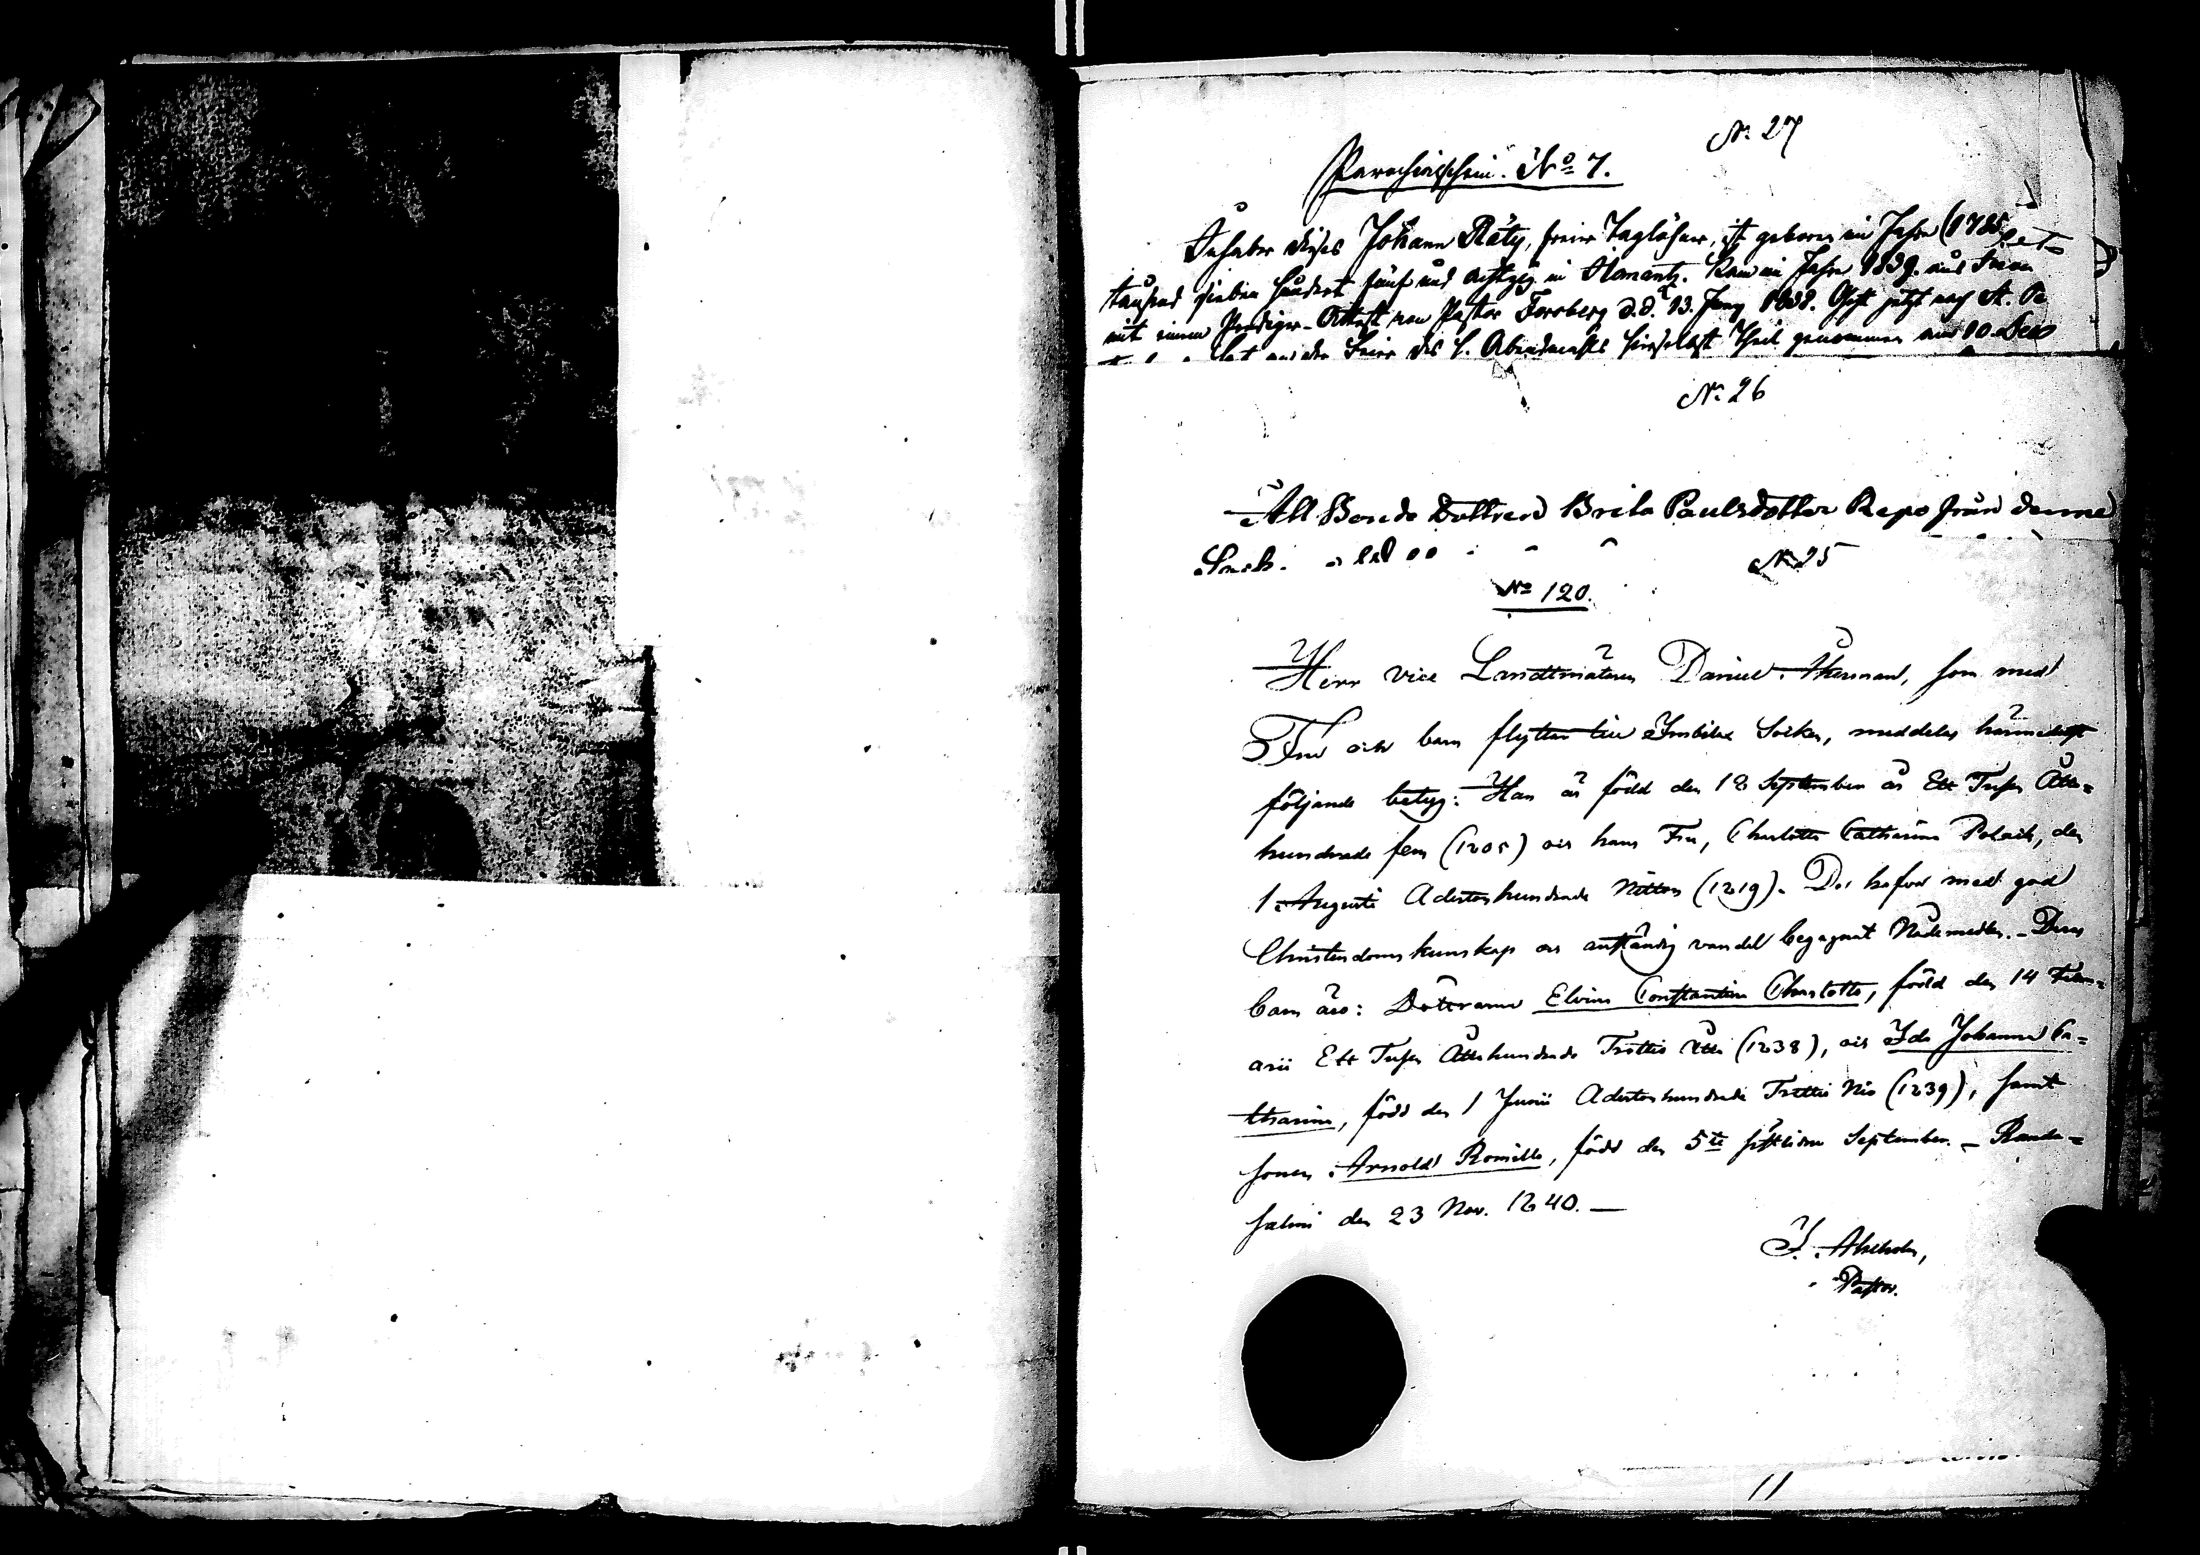 N: 27
Parochialschein. No 7.
Inhaber dieses Johann Räty, freier Taglöhner, ist geboren im Jahre (1785
tausend sieben hundert fünf und achtzig in Ilomantz. Kam im Jahre 1839. aus
mit einem Prediger-Attest von Pastor Forsberg d.d. 13. Juny 1838. Geht jetzt nach St. Pe
hat an der Feier des h. Abendmahls hieselbst Theil genommen am 10
N: 26
Att Bonde Dottren Brita Paulsdotter Repo från denne
Sock.
N: 25
No 120.
Herr vice Landtmätaren Daniel Åkerman, som med
Fru och barn flyttar till Imbilax Socken, meddelas härmedelst
följande betyg: Han är född den 18 September år Ett Tusen Åtta=
hundrade fem (1805) och hans Fru, Charlotta Catharina Polack, den
1 Augusti Adertonhundrade Nitton (1819). De hafva med god
Christendomskunskap och anständig vandel begagnat Nådemedlen. - Deras
barn äro: Döttrarne Elvina Constantia Charlotta, född den 14 Febru=
arii Ett Tusen Åttahundrade Trettio Åtta (1838), och Ida Johanna Ca=
tharina, född den 1 Junii Adertonhundrade Trettio Nio (1839), samt
sonen Arnold Romilla, född den 5te sistlidne September. - Randa=
salmi den 23 Nov. 1840. —
Pastor.
11